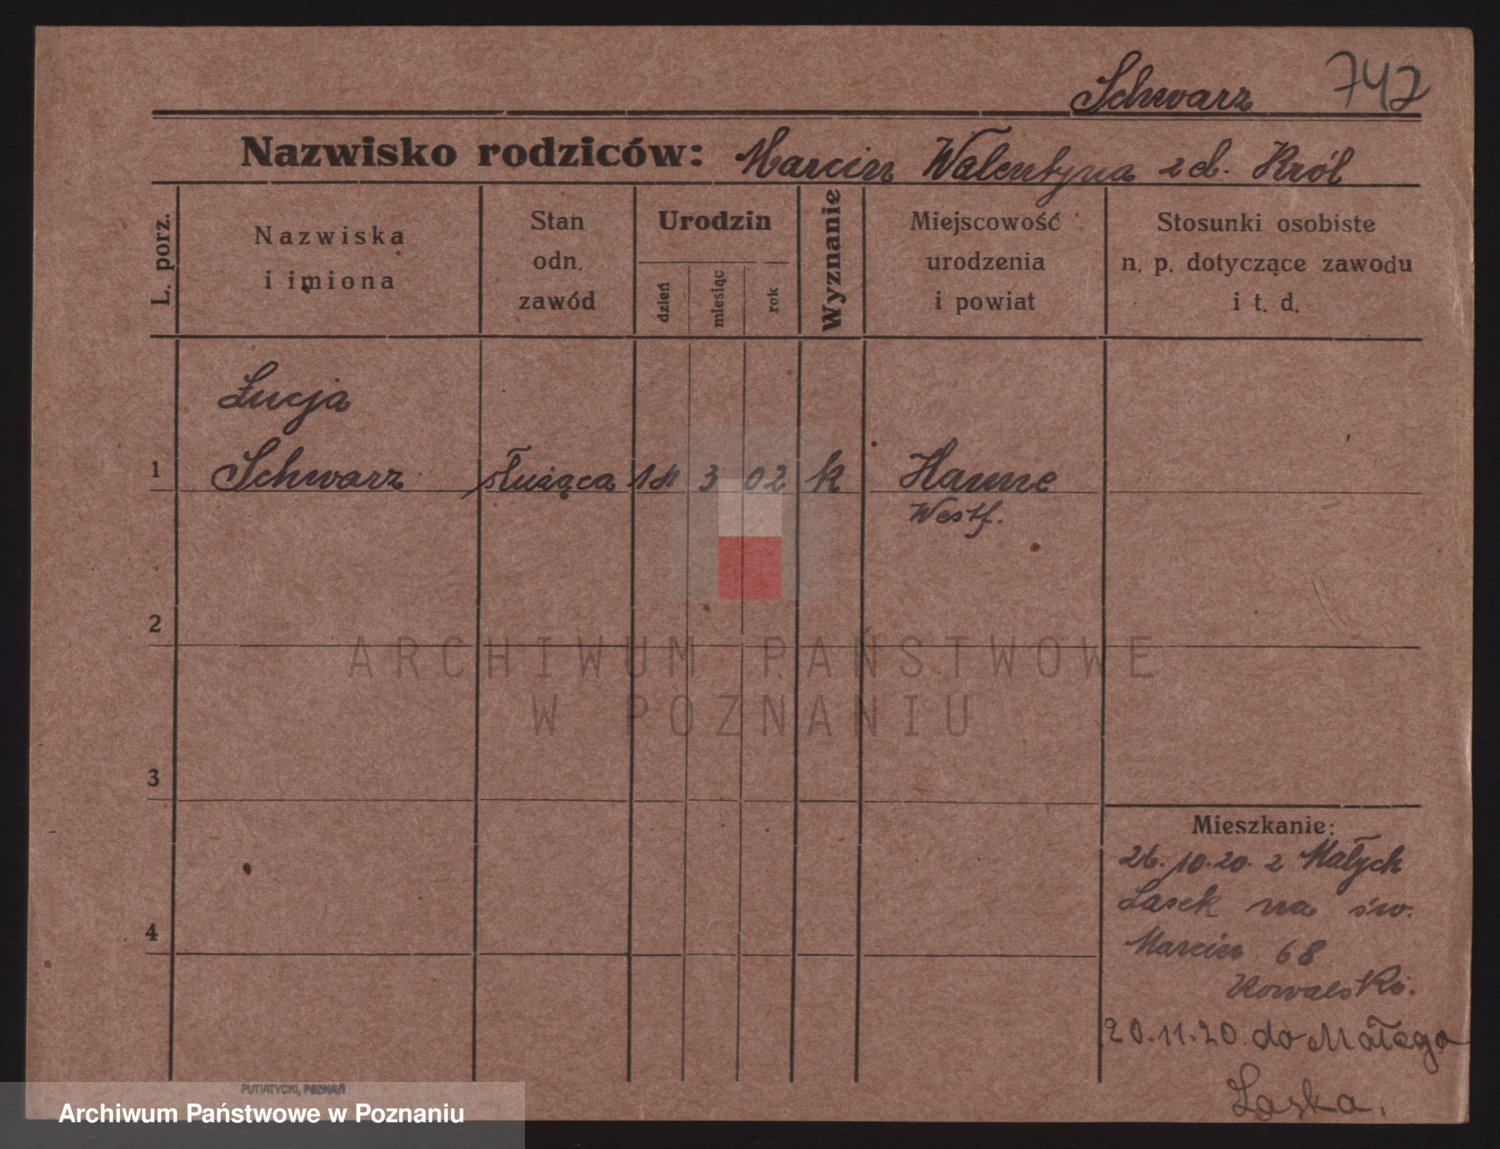 Schwarz 742
Nazwisko rodziców: Marcin Walentyna z d. Król
L. porz.
Nazwiska
i imiona
Stan
odn.
zawód
Urodzin
dzień
miesiąc
rok
Wyznanie
Miejscowość
urodzenia
i powiat
Stosunki osobiste
n. p. dotyczące zawodu
i t. d.
Łucja
1 Schwarz służąca 3 02 k Hamne
Westf.
2
3
4
Mieszkanie:
26.10.20. z Małych
Lasek na św.
Marcin 68
Kowalski.
20.11.20 do Małego
Laska.
PUTIATYCKI, POZNAŃ
ARCHIWUM PAŃSTWOWE
W POZNANIU
Archiwum Państwowe w Poznaniu